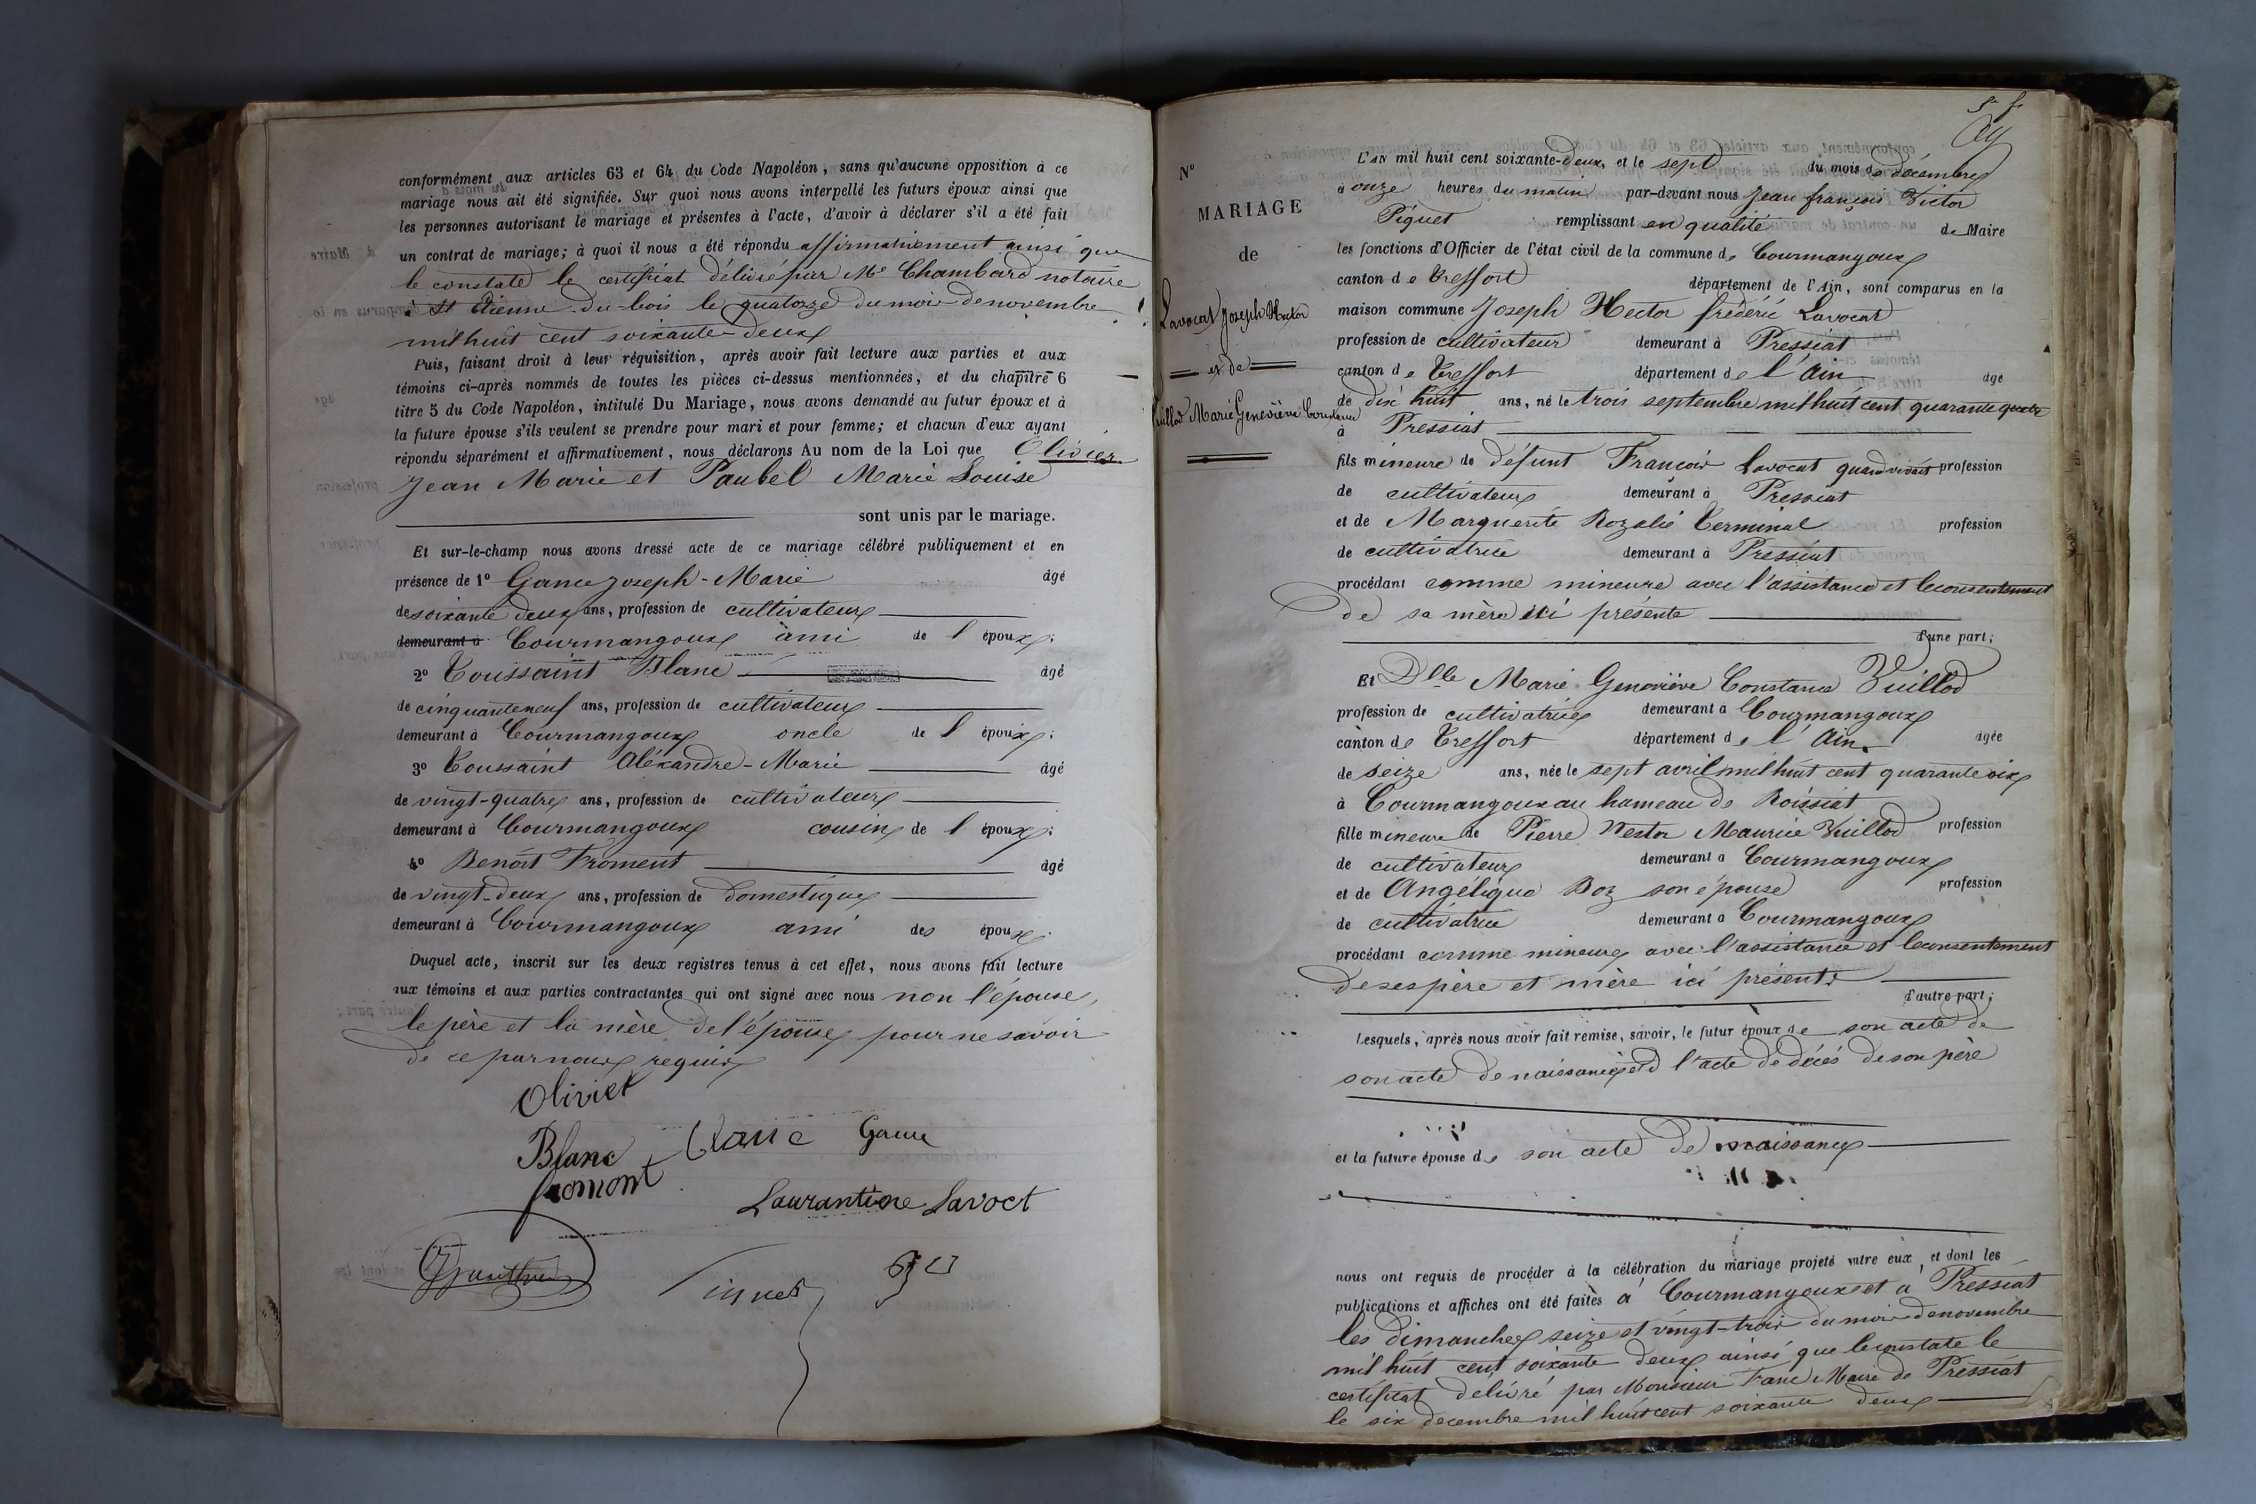 conformément aux articles 63 et 64 du Code Napoléon, sans qu'aucune opposition à ce
mariage nous ait été signifiée. Sur quoi nous avons interpellé les futurs époux ainsi que
les personnes autorisant le mariage et présentes à l'acte, d'avoir à déclarer s'il a été fait
un contrat de mariage; à quoi il nous a été répondu affirmativement ainsi que
le constate le certificat délivré par Me Chambard notaire
à St Etienne-du-bois le quatorze du mois de novembre
mil huit cent soixante-deux
Puis, faisant droit à leur réquisition, après avoir fait lecture aux parties et aux
témoins ci-après nommés de toutes les pièces ci-dessus mentionnées, et du chapitre 6
titre 5 du Code Napoléon, intitulé Du Mariage, nous avons demandé au futur époux et à
la future épouse s'ils veulent se prendre pour mari et pour femme; et chacun d'eux ayant
répondu séparément et affirmativement, nous déclarons Au nom de la Loi que Olivier
Jean Marie et Paubel Marie Louise
sont unis par le mariage.
Et sur-le-champ nous avons dressé acte de ce mariage célébré publiquement et en
présence de 1º Gance Joseph-Marie âgé
de soixante deux ans, profession de cultivateur
demeurant à Courmangoux ami de l époux;
2º Toussaint Blanc âgé
de cinquante neuf ans, profession de cultivateur
demeurant à Courmangoux oncle de l époux;
3º Toussaint Aléxandre-Marie âgé
de vingt-quatre ans, profession de cultivateur
demeurant à Courmangoux cousin de l époux;
4º Benoît Froment âgé
de vingt-deux ans, profession de domestique
demeurant à Courmangoux ami des époux.
Duquel acte, inscrit sur les deux registres tenus à cet effet, nous avons fait lecture
aux témoins et aux parties contractantes qui ont signé avec nous non l'épouse,
le père et la mère de l'épouse pour ne savoir
de ce par nous requis
Olivier
Blanc Blanc Gance
fromont
Laurantine Lavoct
Piquet
Nº
MARIAGE
de
Lavocat Joseph Hector
et de
Vuillod Marie Geneviève Constance
L'AN mil huit cent soixante-deux, et le sept du mois de décembre
à onze heures du matin par-devant nous Jean françois Victor
Piquet remplissant en qualité de Maire
les fonctions d'Officier de l'état civil de la commune de Courmangoux
canton de Treffort département de l'Ain, sont comparus en la
maison commune Joseph Hector frédéric Lavocat
profession de cultivateur demeurant à Pressiat
canton de Treffort département de l'Ain âgé
de dix huit ans, né le trois septembre mil huit cent quarante quatre
à Pressiat
fils mineure de défunt François Lavocat quand vivait profession
de cultivateur demeurant à Pressiat
et de Marguerite Rozalie Terminal profession
de cultivatrice demeurant à Pressiat
procédant comme mineure avec l'assistance et le consentement
de sa mère ici présente
d'une part;
Et Dlle Marie Geneviève Constance Vuillod
profession de cultivatrice demeurant à Courmangoux
canton de Treffort département de l'Ain. âgée
de seize ans, née le sept avril mil huit cent quarante six
à Courmangoux au hameau de Roissiat
fille mineure de Pierre Nestor Maurice Vuillod profession
de cultivateur demeurant à Courmangoux
et de Angélique Boz son épouse profession
de cultivatrice demeurant à Courmangoux
procédant comme mineure avec l'assistance et le consentement
de ses père et mère ici présents
d'autre part;
Lesquels, après nous avoir fait remise, savoir, le futur époux de son acte de
son acte de naissance et d l'acte de décés de son père
et la future épouse de son acte de naissance
nous ont requis de procéder à la célébration du mariage projeté entre eux, et dont les
publications et affiches ont été faites à Courmangoux et à Pressiat
les dimanches seize et vingt-trois du mois de novembre
mil huit cent soixante deux ainsi que le constate le
certificat delivré par Monsieur Maire de Pressiat
le six decembre mil huit cent soixante deux